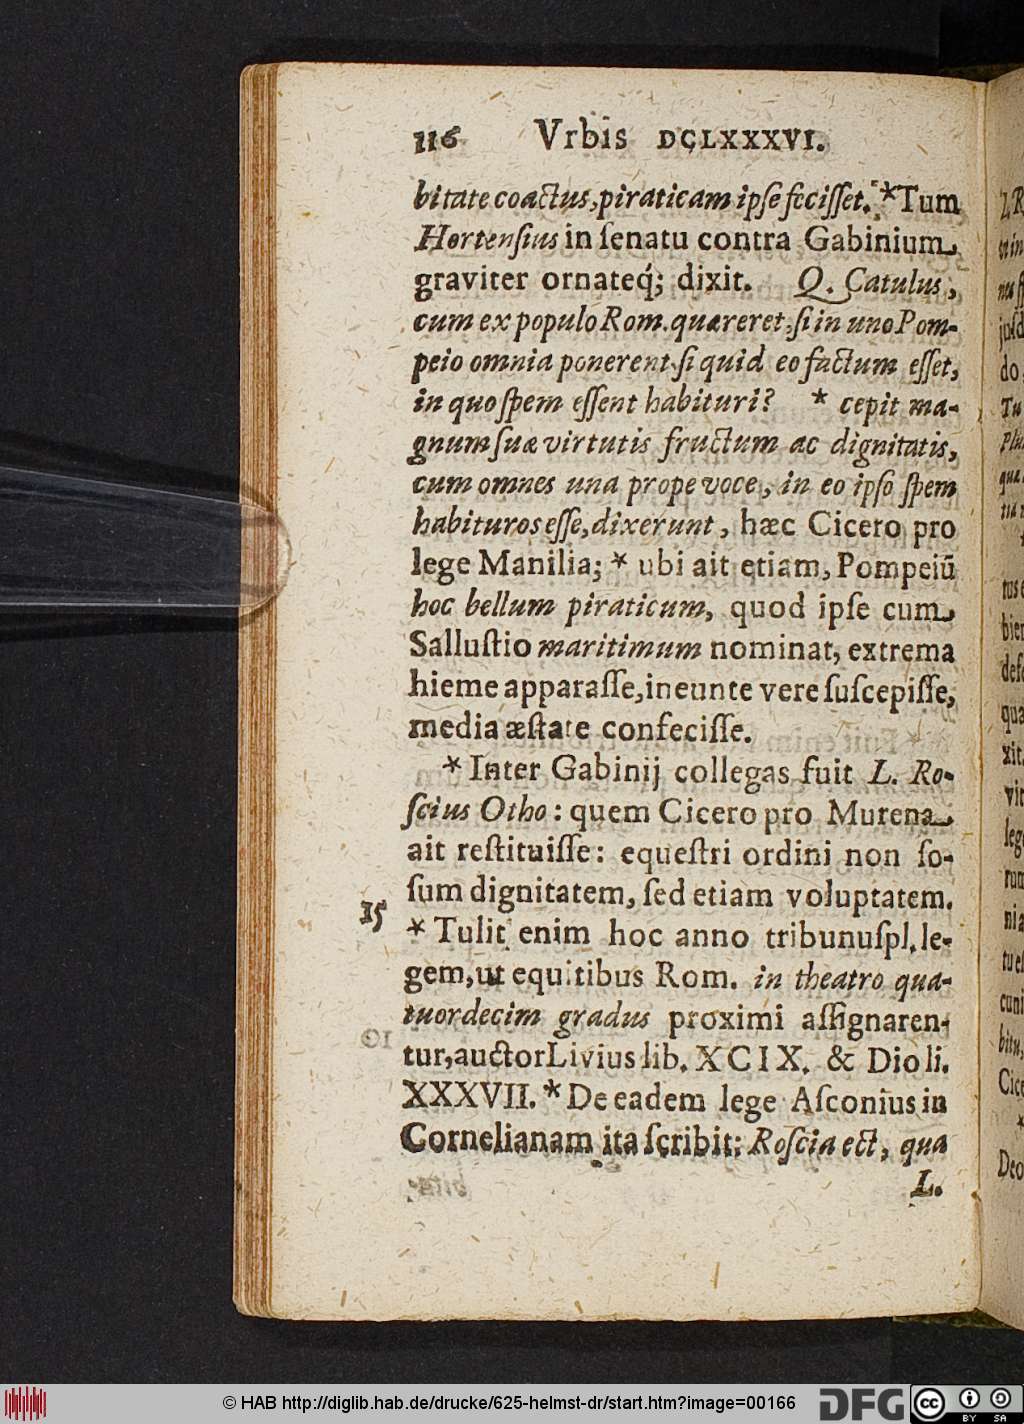 116 Vrbis DCLXXXVI.
bitate coactus, piraticam ipse fecisset. *Tum
Hortensius in senatu contra Gabinium
graviter ornateq́; dixit. Q. Catulus,
cum ex populo Rom. quæreret, si in uno Pom-
peio omnia ponerent, si quid eo factum esset,
in quo spem essent habituri? * cepit ma-
gnum suæ virtutis fructum ac dignitatis,
cum omnes una prope voce, in eo ipso spem
habituros esse, dixerunt, hæc Cicero pro
lege Manilia; * ubi ait etiam, Pompeiũ
hoc bellum piraticum, quod ipse cum
Sallustio maritimum nominat, extrema
hieme apparasse, ineunte vere suscepisse,
media æstate confecisse.
* Inter Gabinij collegas fuit L. Ro-
scius Otho: quem Cicero pro Murena
ait restituisse: equestri ordini non so-
sum dignitatem, sed etiam voluptatem.
15
* Tulit enim hoc anno tribunus pl. le-
gem, ut equitibus Rom. in theatro qua-
tuordecim gradus proximi assignaren-
tur, auctor Livius lib. XCIX. & Dio li.
XXXVII. * De eadem lege Asconius in
Cornelianam ita scribit: Roscia ect, qua
L.
© HAB http://diglib.hab.de/drucke/625-helmst-dr/start.htm?image=00166
DFG
cc
BY SA